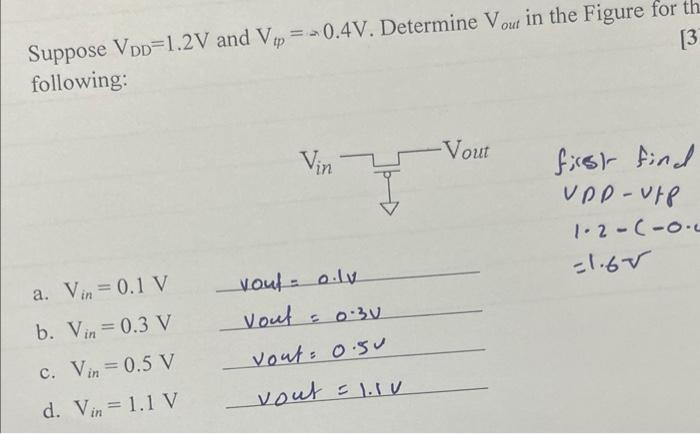 Suppose VDD=1.2V and Vtp = -0.4V. Determine Vout in the Figure for th
[3
following:
Vin
Vout
first find
VDD - Vtp
1.2-(-0.
=1.6V
a. Vin = 0.1 V
Vout = 0.1V
b. Vin = 0.3 V
Vout = 0.3V
c. Vin = 0.5 V
Vout = 0.5V
d. Vin = 1.1 V
Vout = 1.1V